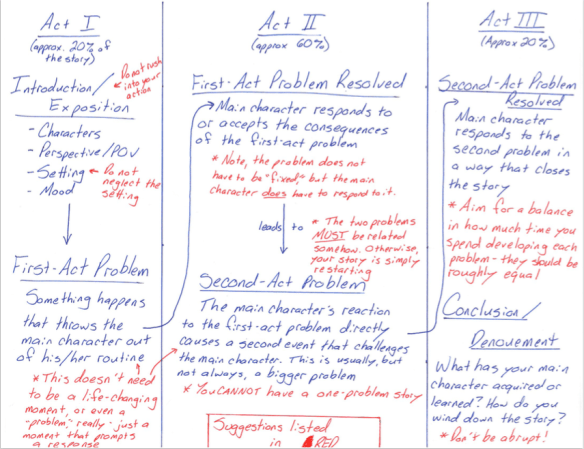 Act I
(approx. 20% of
the story)
Introduction/
Exposition
Do not rush
into your
action
- Characters
- Perspective/POV
- Setting
- Mood
Do not
neglect the
setting
First-Act Problem
Something happens
that throws the
main character out
of his/her routine
* This doesn't need
to be a life-changing
moment, or even a
"problem," really - just a
moment that prompts
a response
Act II
(approx 60%)
First-Act Problem Resolved
Main character responds to
or accepts the consequences
of the first-act problem
* Note, the problem does not
have to be "fixed," but the main
character does have to respond to it.
leads to
* The two problems
MUST be related
somehow. Otherwise,
your story is simply
restarting
Second-Act Problem
The main character's reaction
to the first-act problem directly
causes a second event that challenges
the main character. This is usually, but
not always, a bigger problem
* YOU CANNOT have a one-problem story
Suggestions listed
in RED
Act III
(Approx 20%)
Second-Act Problem
Resolved
Main character
responds to the
second problem in
a way that closes
the story
* Aim for a balance
in how much time you
spend developing each
problem - they should be
roughly equal
Conclusion/
Denouement
What has your main
character acquired or
learned? How do you
wind down the story?
* Don't be abrupt!